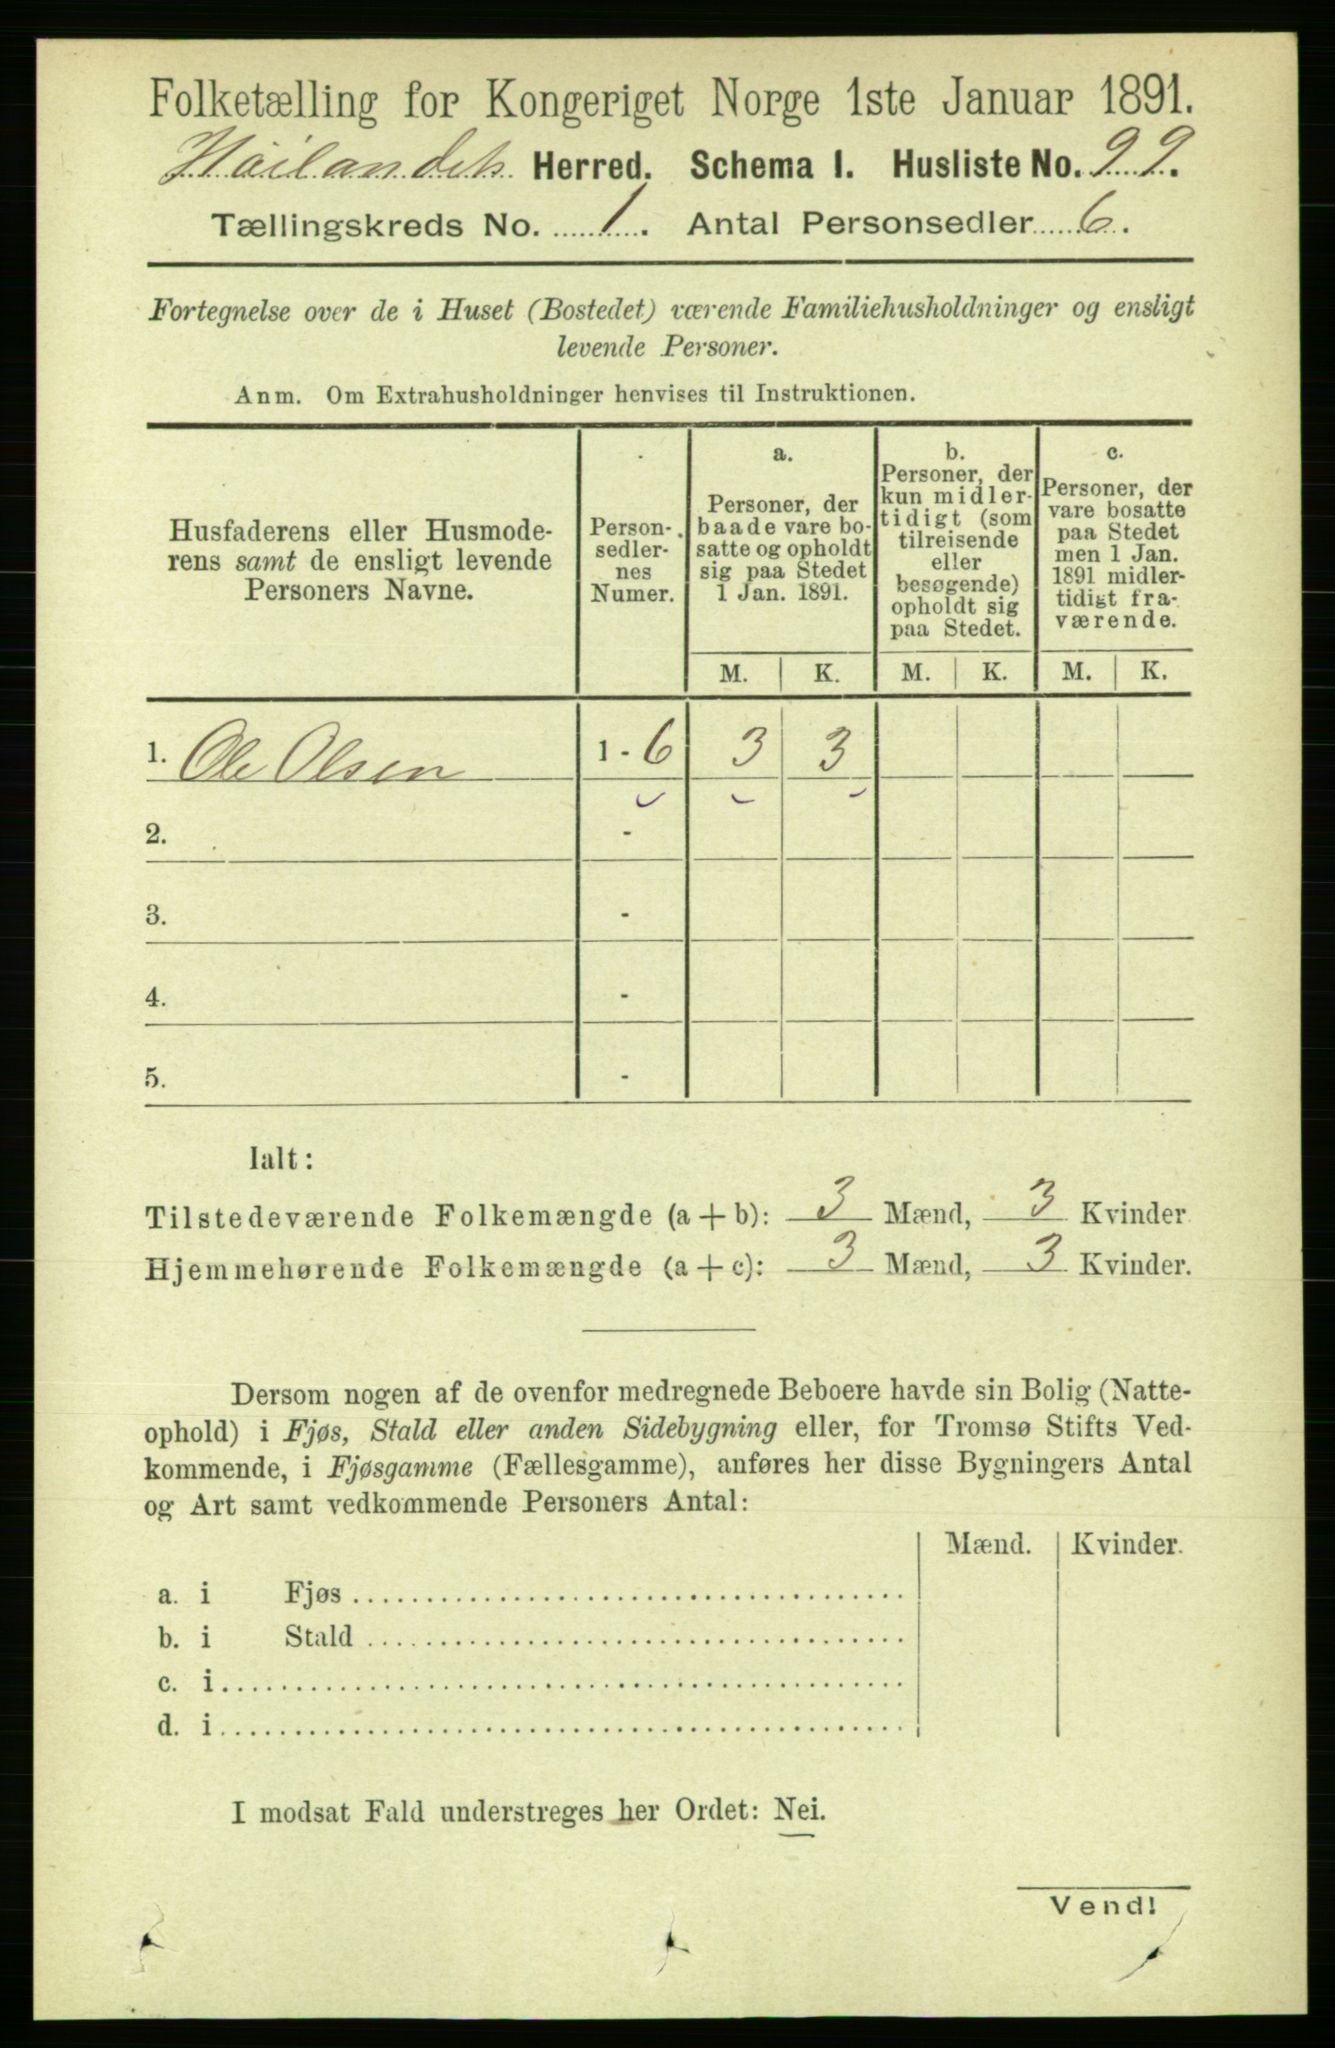 Folketælling for Kongeriget Norge 1ste Januar 1891.
Höilandets Herred. Schema I. Husliste No. 99.
Tællingskreds No. 1. Antal Personsedler 6.
Fortegnelse over de i Huset (Bostedet) værende Familiehusholdninger og ensligt
levende Personer.
Anm. Om Extrahusholdninger henvises til Instruktionen.
Husfaderens eller Husmode-
rens samt de ensligt levende
Personers Navne.
Person-
sedler-
nes
Numer.
a.
Personer, der
baade vare bo-
satte og opholdt
sig paa Stedet
1 Jan. 1891.
b.
Personer, der
kun midler-
tidigt (som
tilreisende
eller
besøgende)
opholdt sig
paa Stedet.
c.
Personer, der
vare bosatte
paa Stedet
men 1 Jan.
1891 midler-
tidigt fra-
værende.
M. K. M. K. M. K.
1. Ole Olsen 1 - 6 3 3
2. -
3. -
4. -
5. -
Ialt:
Tilstedeværende Folkemængde (a + b): 3 Mænd, 3 Kvinder
Hjemmehørende Folkemængde (a + c): 3 Mænd, 3 Kvinder.
Dersom nogen af de ovenfor medregnede Beboere havde sin Bolig (Natte-
ophold) i Fjøs, Stald eller anden Sidebygning eller, for Tromsø Stifts Ved-
kommende, i Fjøsgamme (Fællesgamme), anføres her disse Bygningers Antal
og Art samt vedkommende Personers Antal:
Mænd. Kvinder.
a. i Fjøs
b. i Stald
c. i
d. i
I modsat Fald understreges her Ordet: Nei.
Vend!